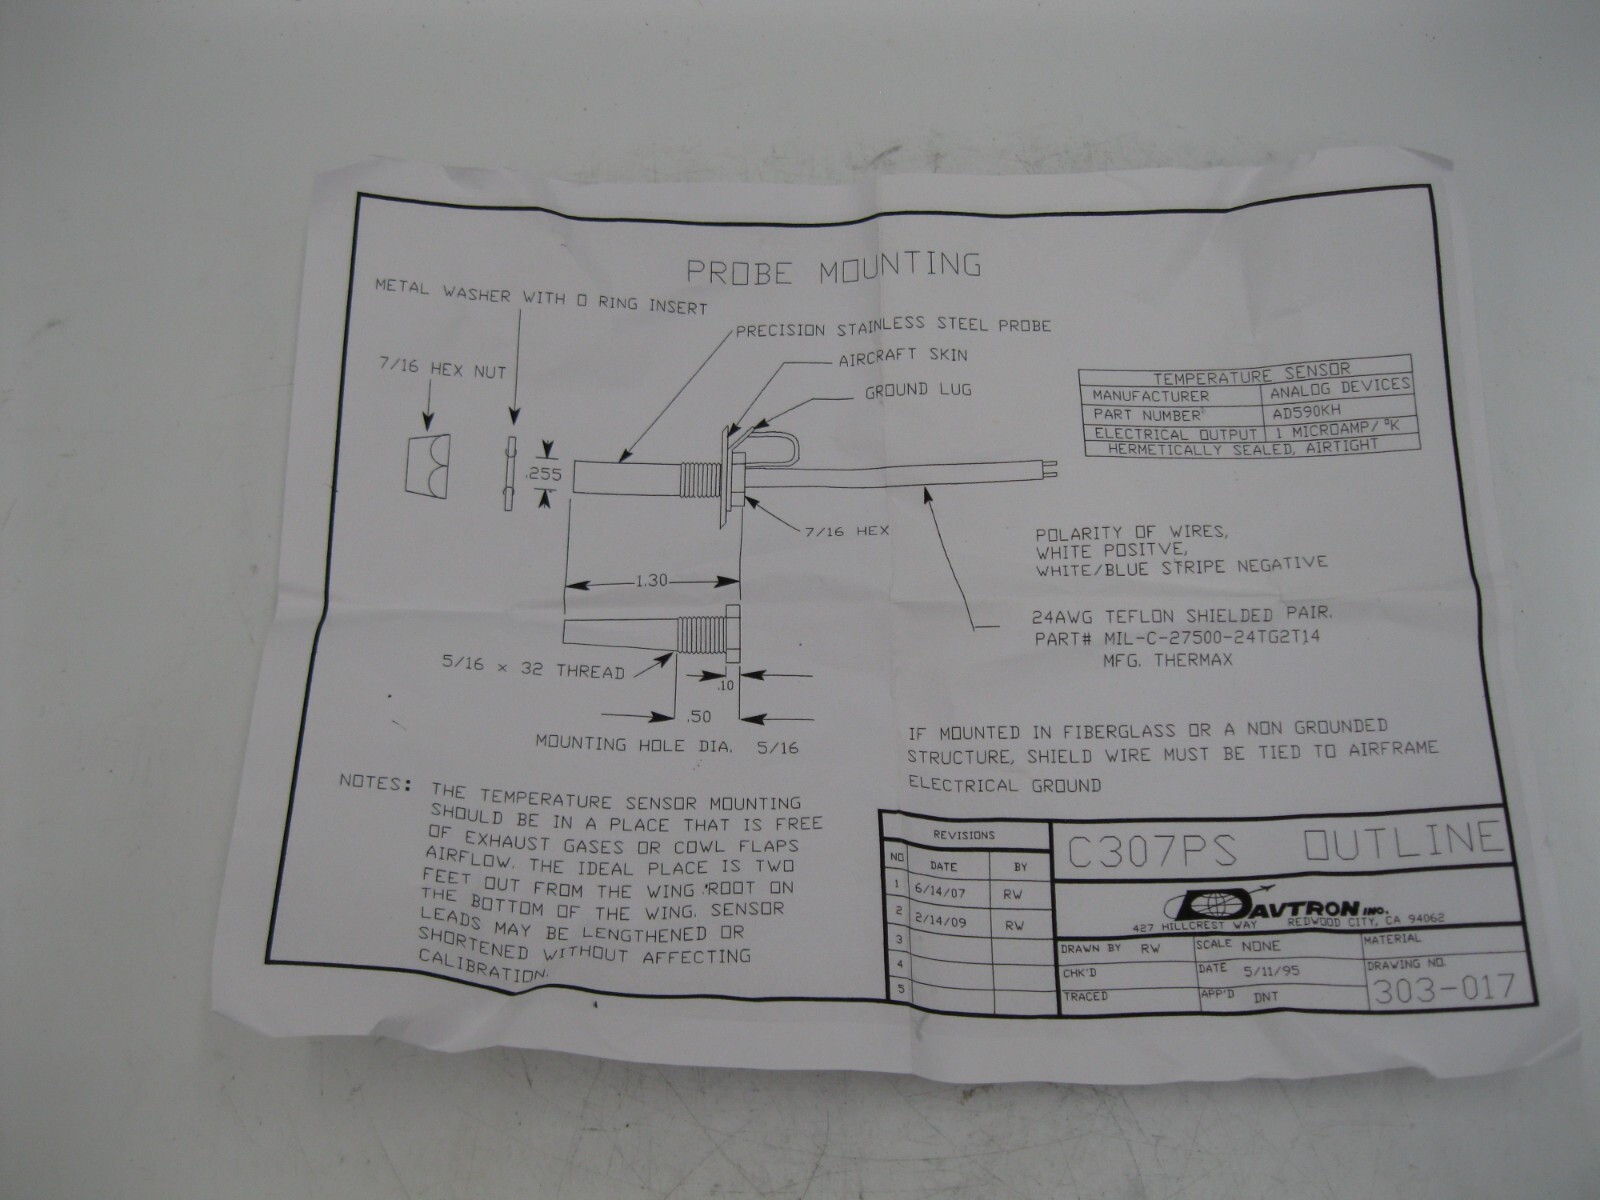 PROBE MOUNTING
METAL WASHER WITH O RING INSERT
PRECISION STAINLESS STEEL PROBE
AIRCRAFT SKIN
7/16 HEX NUT
GROUND LUG
TEMPERATURE SENSOR
MANUFACTURER ANALOG DEVICES
PART NUMBER AD590KH
ELECTRICAL OUTPUT 1 MICROAMP/°K
HERMETICALLY SEALED, AIRTIGHT
.255
7/16 HEX
POLARITY OF WIRES,
WHITE POSITVE,
WHITE/BLUE STRIPE NEGATIVE
1.30
24AWG TEFLON SHIELDED PAIR.
PART# MIL-C-27500-24TG2T14
MFG. THERMAX
5/16 x 32 THREAD
.10
.50
MOUNTING HOLE DIA. 5/16
IF MOUNTED IN FIBERGLASS OR A NON GROUNDED
STRUCTURE, SHIELD WIRE MUST BE TIED TO AIRFRAME
ELECTRICAL GROUND
NOTES: THE TEMPERATURE SENSOR MOUNTING
SHOULD BE IN A PLACE THAT IS FREE
OF EXHAUST GASES OR COWL FLAPS
AIRFLOW. THE IDEAL PLACE IS TWO
FEET OUT FROM THE WING ROOT ON
THE BOTTOM OF THE WING. SENSOR
LEADS MAY BE LENGTHENED OR
SHORTENED WITHOUT AFFECTING
CALIBRATION.
REVISIONS
NO DATE BY
1 6/14/07 RW
2 2/14/09 RW
3
4
5
C307PS OUTLINE
DAVTRON INC.
427 HILLCREST WAY REDWOOD CITY, CA 94062
DRAWN BY RW SCALE NONE MATERIAL
CHK'D DATE 5/11/95 DRAWING NO.
TRACED APP'D DNT 303-017